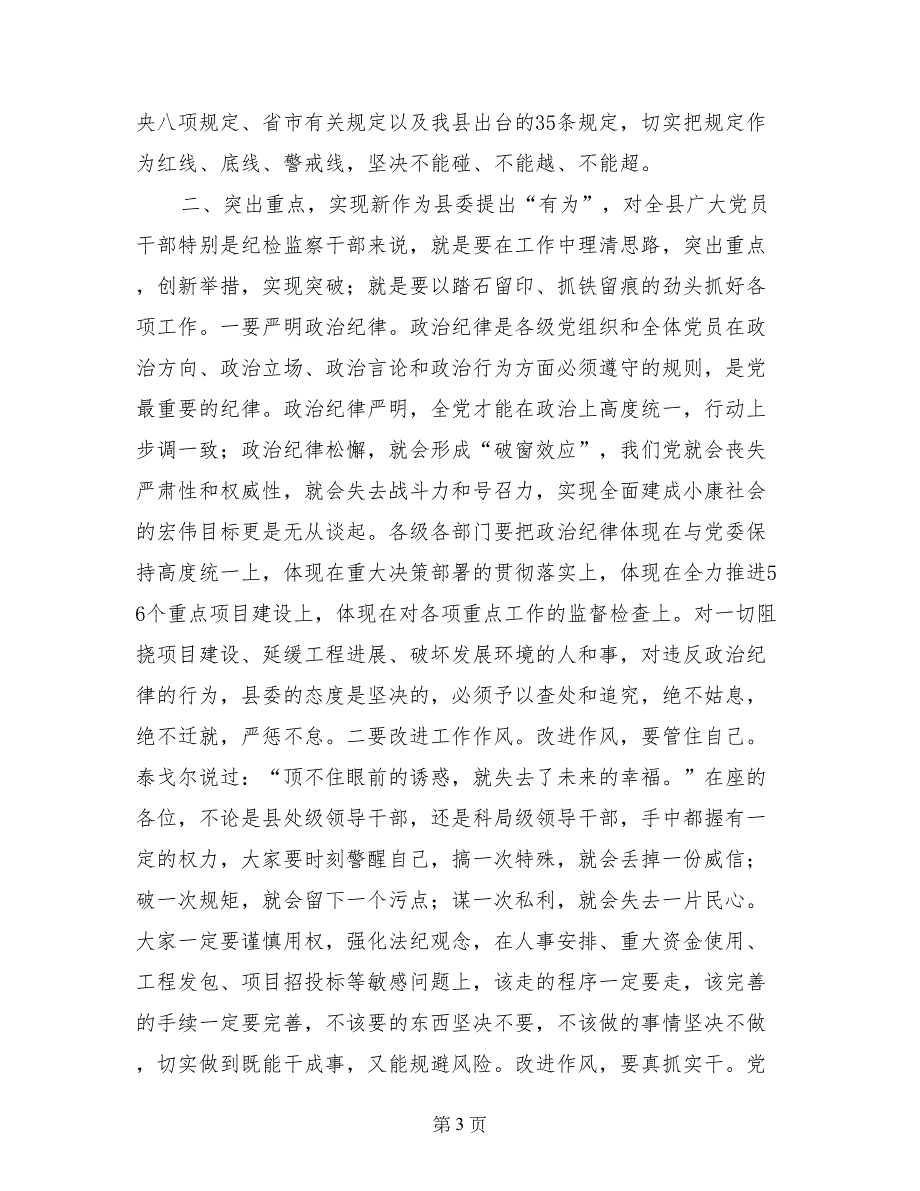 央八项规定、省市有关规定以及我县出台的35条规定，切实把规定作
为红线、底线、警戒线，坚决不能碰、不能越、不能超。
二、突出重点，实现新作为县委提出“有为”，对全县广大党员
干部特别是纪检监察干部来说，就是要在工作中理清思路，突出重点
，创新举措，实现突破；就是要以踏石留印、抓铁留痕的劲头抓好各
项工作。一要严明政治纪律。政治纪律是各级党组织和全体党员在政
治方向、政治立场、政治言论和政治行为方面必须遵守的规则，是党
最重要的纪律。政治纪律严明，全党才能在政治上高度统一，行动上
步调一致；政治纪律松懈，就会形成“破窗效应”，我们党就会丧失
严肃性和权威性，就会失去战斗力和号召力，实现全面建成小康社会
的宏伟目标更是无从谈起。各级各部门要把政治纪律体现在与党委保
持高度统一上，体现在重大决策部署的贯彻落实上，体现在全力推进5
6个重点项目建设上，体现在对各项重点工作的监督检查上。对一切阻
挠项目建设、延缓工程进展、破坏发展环境的人和事，对违反政治纪
律的行为，县委的态度是坚决的，必须予以查处和追究，绝不姑息，
绝不迁就，严惩不怠。二要改进工作作风。改进作风，要管住自己。
泰戈尔说过：“顶不住眼前的诱惑，就失去了未来的幸福。”在座的
各位，不论是县处级领导干部，还是科局级领导干部，手中都握有一
定的权力，大家要时刻警醒自己，搞一次特殊，就会丢掉一份威信；
破一次规矩，就会留下一个污点；谋一次私利，就会失去一片民心。
大家一定要谨慎用权，强化法纪观念，在人事安排、重大资金使用、
工程发包、项目招投标等敏感问题上，该走的程序一定要走，该完善
的手续一定要完善，不该要的东西坚决不要，不该做的事情坚决不做
，切实做到既能干成事，又能规避风险。改进作风，要真抓实干。党
第 3 页